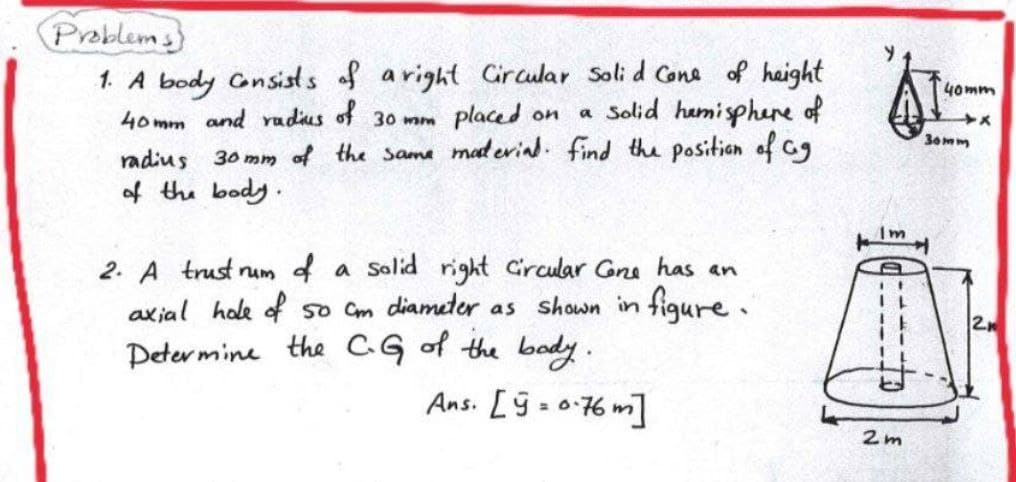 Problems
1. A body Consists of a right Circular Solid Cone of height
40 mm and radius of 30 mm placed on a solid hemisphere of
radius 30 mm of the same material. find the position of Cg
of the body.
y
40mm
x
30mm
2. A trustrum of a solid right Circular Cone has an
axial hole of 50 Cm diameter as shown in figure.
Determine the C.G of the body.
Ans. [ȳ = 0.76 m]
1m
2m
2m